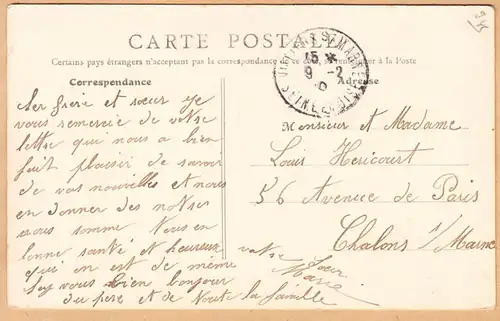 CARTE POSTALE
Certains pays étrangers n'acceptent pas la correspondance de ce côté, se renseigner à la Poste
Correspondance
Adresse
15 *
9 - 2
Cher frère et sœur je
vous remercie de votre
lettre qui nous a bien
fait plaisir de savoir
de vos nouvelles et nous
en donner des notres
nous somme Tous en
bonne santé et heureux
qui en est de même
bien bonjour
du père et de Toute la famille
votre
Sœur
Marie
Monsieur et Madame
Louis Hericourt
56 Avenue de Paris
Chalons s/Marne